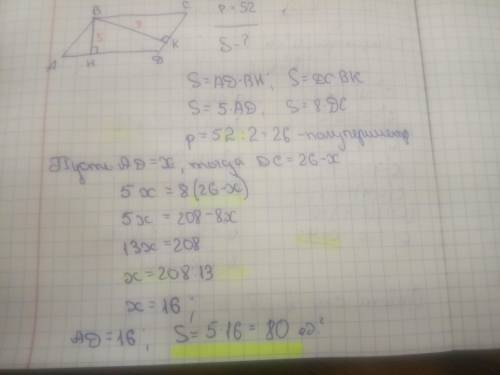 B C P = 52
5 8 K S - ?
A H D
S = AD·BH; S = DC·BK
S = 5·AD, S = 8·DC
p = 52 : 2 = 26 - полупериметр
Пусть AD = x, тогда DC = 26 - x
5x = 8(26 - x)
5x = 208 - 8x
13x = 208
x = 208:13
x = 16;
AD = 16; S = 5·16 = 80